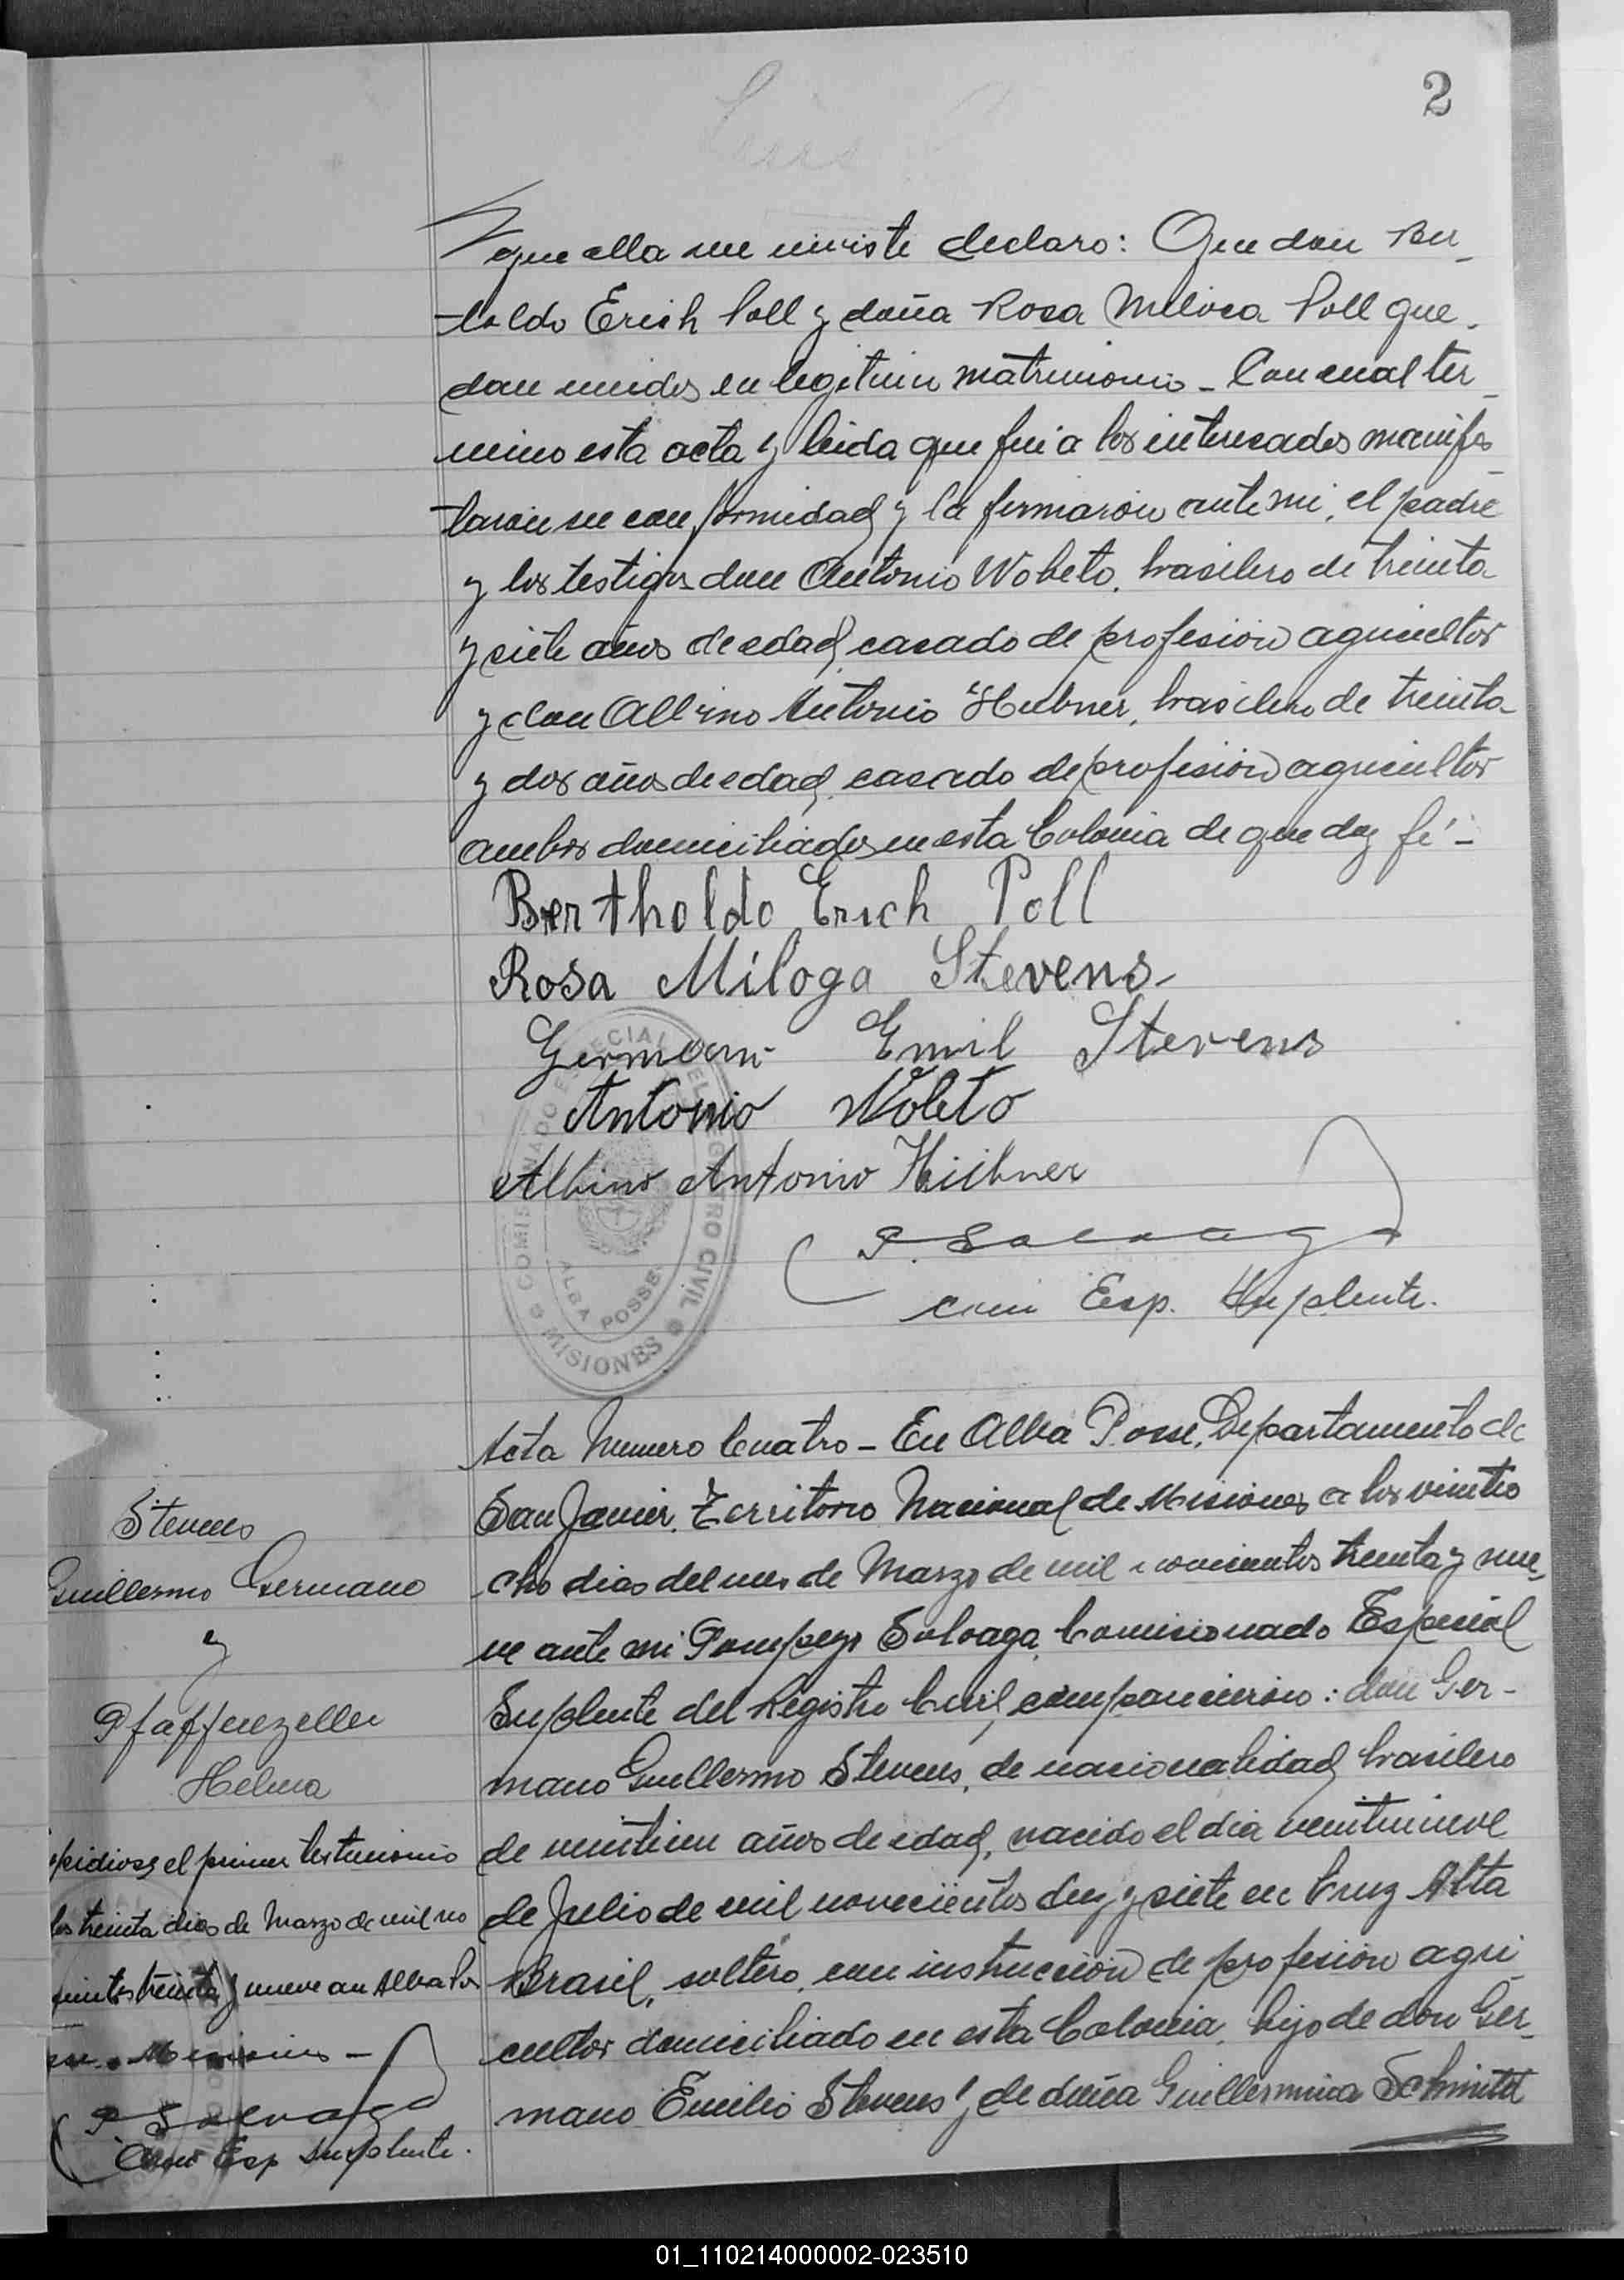 2
que ella me inviste declaro: Que don Ber-
toldo Erich Poll y doña Rosa Miloca Poll que-
dan unidos en legitimo matrimonio - Con cual ter-
mino esta acta y leida que fui a los interesados manifes-
taron su conformidad y la firmaron ante mi, el padre
y los testigos don Antonio Wobeto, brasilero de treinta
y siete años de edad, casado de profesion agricultor
y don Albino Antonio Hubner, brasilero de treinta
y dos años de edad, casado de profesion agricultor
ambos domiciliados en esta Colonia de que doy fé -
Bertholdo Erich Poll
Rosa Miloga Stevens
Germann Emil Stevens
Antonio Wobeto
Albino Antonio Hübner
P. Salvaga
Com Esp. Suplente.
COMISIONADO ESPECIAL DEL REGISTRO CIVIL
ALBA POSSE
MISIONES
Acta Numero Cuatro - En Alba Posse, Departamento de
San Javier, Territorio Nacional de Misiones a los vintio
cho dias del mes de Marzo de mil novicientos treinta y nue-
ve ante mi Pompeyo Salvaga, Comisionado Especial
Suplente del Registro Civil, comparecieron: don Ger-
mano Guillermo Stevens, de nacionalidad brasilero
de veintiun años de edad, nacido el dia veintinueve
de Julio de mil novecientos diez y siete en Cruz Alta
Brasil, soltero, con instruccion de profesion agri
cultor domiciliado en esta Colonia, hijo de don Ger-
mano Emilio Stevens y de doña Guillermina Schmitd
Stevens
Guillermo Germano
y
Pfaffenzeller
Helma
pidiose el primer testimonio
los treinta dias de Marzo de mil no
cientos treinta y nueve en Alba Po
sse. Misiones -
P. Salvaga
Com Esp Suplente.
01_110214000002-023510